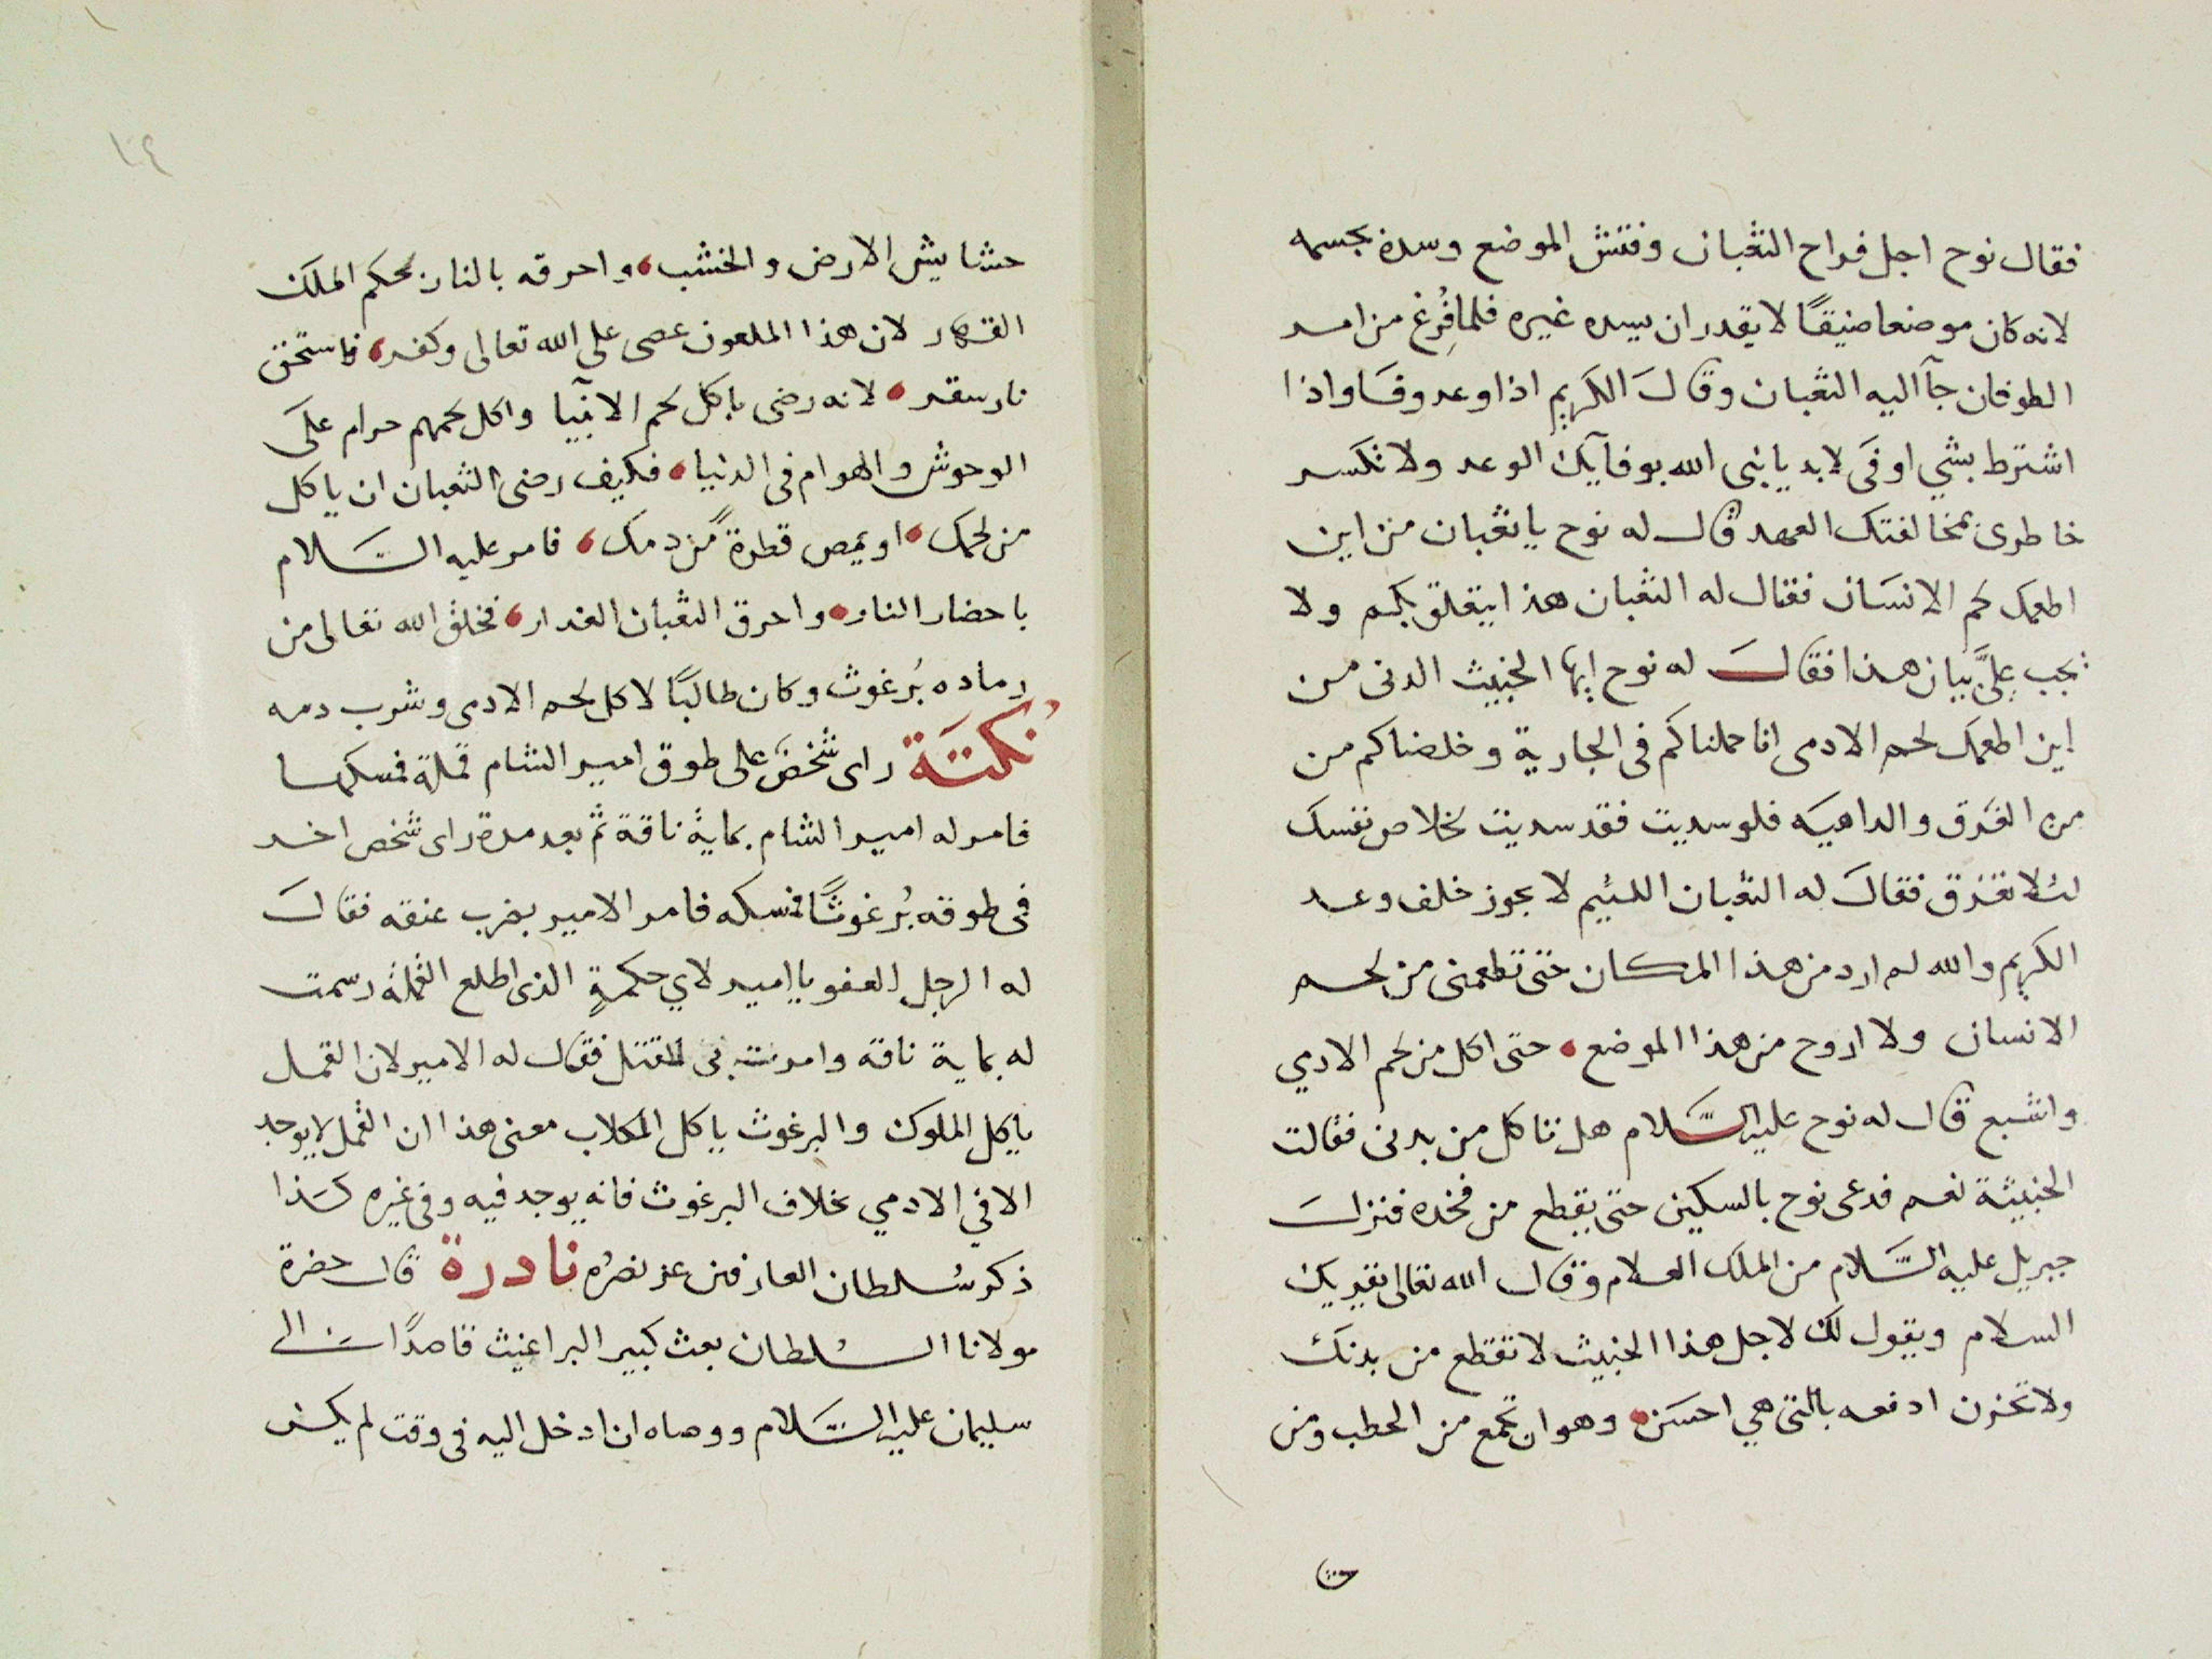 فقال نوح اجل فراح الثعبان وفتش الموضع وسده بجسمه
لانه كان موضعا ضيقًا لا يقدر ان يسده غيره فلما فُرِغ من امر
الطوفان جآ اليه الثعبان وقال الكريم اذا وعد وفا واذا
اشترط بشي اوفى لابد يا نبى الله بوفآيك الوعد ولا تكسر
خاطرى بمخالفتك العهد قال له نوح يا ثعبان من اين
اطعمك لحم الانسان فقال له الثعبان هذا يتعلق بكم ولا
يجب علىَّ بيان هذا فقال له نوح ايها الخبيث الدنى من
اين اطعمك لحم الادمى انا حملناكم فى الجارية وخلصناكم من
من الغرق والداهيه فلو سديت فقد سديت لخلاص نفسك
لئلا تغرق فقال له الثعبان اللئيم لا يجوز خلف وعد
الكريم والله لم ارد من هذا المكان حتى تطعمنى من لحم
الانسان ولا اروح من هذا الموضع حتى اكل من لحم الادمي
واشبع قال له نوح عليه السَّلام هل تاكل من بدنى فقالت
الخبيثة نعم فدعى نوح بالسكين حتى يقطع من فخذه فنزل
جبريل عليه السَّلام من الملك العلام وقال الله تعالى يقريك
السلام ويقول لك لاجل هذا الخبيث لا تقطع من بدنك
ولا تحزن ادفعه بالتى هي احسن وهو ان تجمع من الحطب ومن
١٤
حشايش الارض والخشب واحرقه بالنار بحكم الملك
القهار لان هذا الملعون عصى على الله تعالى وكفر فاستحق
نار سقر لانه رضى باكل لحم الانبيآ واكل لحمهم حرام على
الوحوش والهوام فى الدنيا فكيف رضى الثعبان ان ياكل
من لحمك او يمص قطرة من دمك فامر عليه السَّلام
باحضار النار واحرق الثعبان الغدار فخلق الله تعالى من
رماده بُرغوث وكان طالبًا لاكل لحم الادمى وشرب دمه
نُكتَة راى شخص على طوق امير الشام قملة فمسكها
فامر له امير الشام بماية ناقة ثم بعد مدة راى شخص اخر
فى طوقه بُرغوثًا فمسكه فامر الامير بضرب عنقه فقال
له الرجل العفو يا امير لاي حكمةٍ الذى اطلع القملة رسمت
له بماية ناقة وامرت بى للقتل فقال له الامير لان القمل
ياكل الملوك والبرغوث ياكل الكلاب معنى هذا ان القمل لا يوجد
الا في الادمي بخلاف البرغوث فانه يوجد فيه وفى غيره كذا
ذكر سُلطان العارفين عز نصرُه نادرة قال حضرة
مولانا السُلطان بعث كبير البراغيث قاصدًا الى
سليمان عليه السَّلام ووصاه ان ادخل اليه فى وقت لم يكن